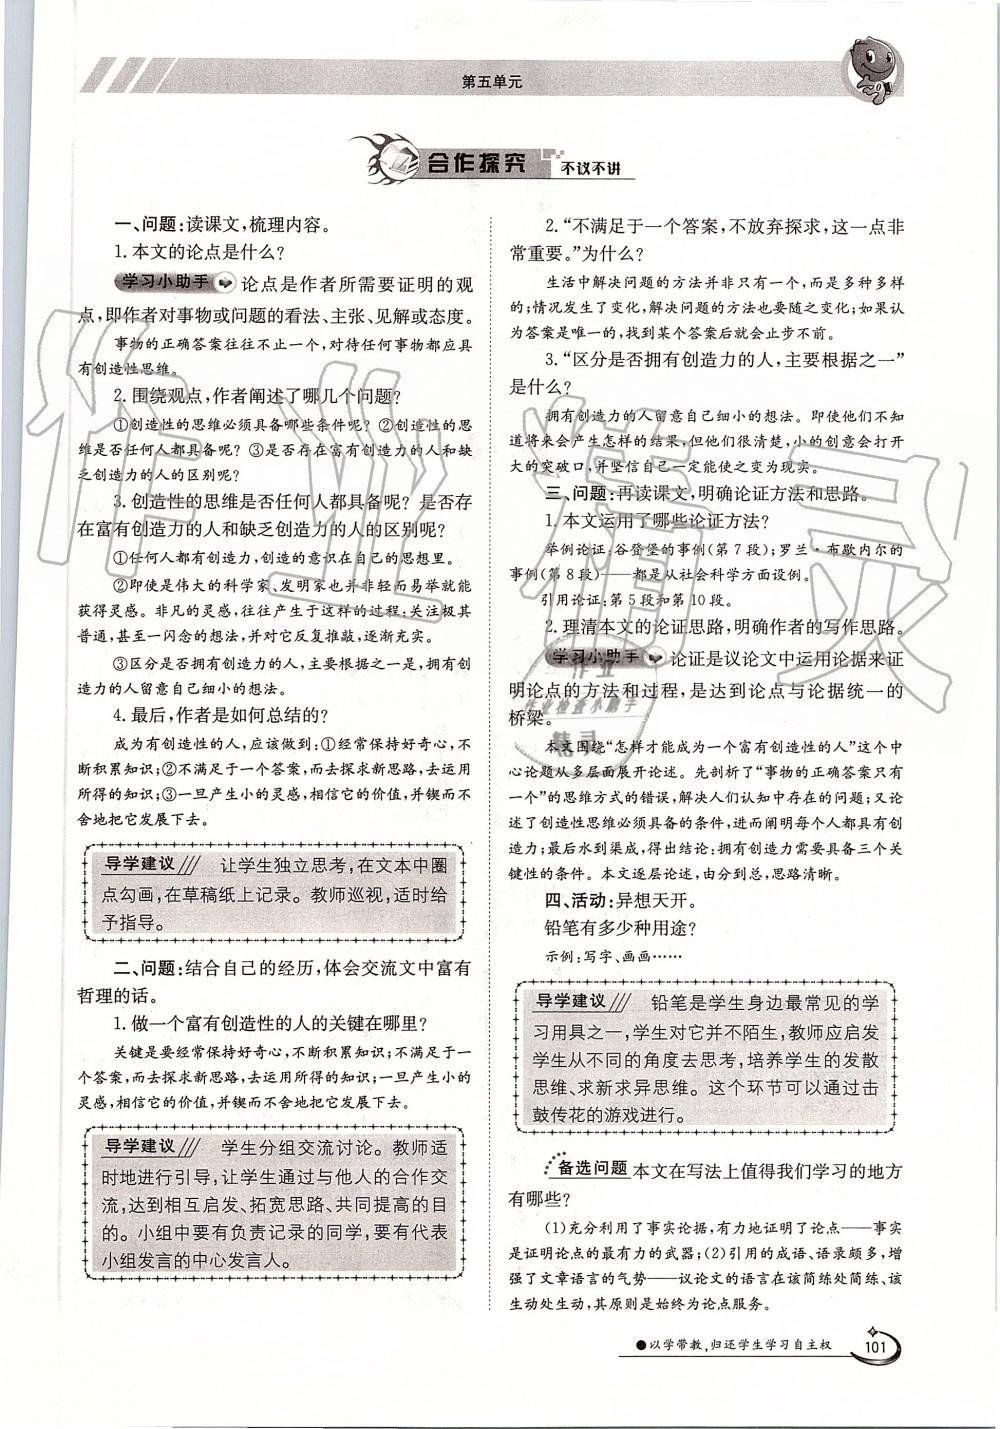 第五单元
合作探究 不议不讲
一、问题:读课文,梳理内容。
1.本文的论点是什么?
学习小助手 论点是作者所需要证明的观
点,即作者对事物或问题的看法、主张、见解或态度。
事物的正确答案往往不止一个,对待任何事物都应具
有创造性思维。
2.围绕观点,作者阐述了哪几个问题?
①创造性的思维必须具备哪些条件呢?②创造性的思
维是否任何人都具备呢?③是否存在富有创造力的人和缺
乏创造力的人的区别呢?
3.创造性的思维是否任何人都具备呢?是否存
在富有创造力的人和缺乏创造力的人的区别呢?
①任何人都有创造力,创造的意识在自己的思想里。
②即使是伟大的科学家、发明家也并非轻而易举就能
获得灵感。非凡的灵感,往往产生于这样的过程:关注极其
普通,甚至一闪念的想法,并对它反复推敲,逐渐充实。
③区分是否拥有创造力的人,主要根据之一是,拥有创
造力的人留意自己细小的想法。
4.最后,作者是如何总结的?
成为有创造性的人,应该做到:①经常保持好奇心,不
断积累知识;②不满足于一个答案,而去探求新思路,去运用
所得的知识;③一旦产生小的灵感,相信它的价值,并锲而不
舍地把它发展下去。
导学建议 让学生独立思考,在文本中圈
点勾画,在草稿纸上记录。教师巡视,适时给
予指导。
二、问题:结合自己的经历,体会交流文中富有
哲理的话。
1.做一个富有创造性的人的关键在哪里?
关键是要经常保持好奇心,不断积累知识;不满足于一
个答案,而去探求新思路,去运用所得的知识;一旦产生小的
灵感,相信它的价值,并锲而不舍地把它发展下去。
导学建议 学生分组交流讨论。教师适
时地进行引导,让学生通过与他人的合作交
流,达到相互启发、拓宽思路、共同提高的目
的。小组中要有负责记录的同学,要有代表
小组发言的中心发言人。
2.“不满足于一个答案,不放弃探求,这一点非
常重要。”为什么?
生活中解决问题的方法并非只有一个,而是多种多样
的;情况发生了变化,解决问题的方法也要随之变化;如果认
为答案是唯一的,找到某个答案后就会止步不前。
3.“区分是否拥有创造力的人,主要根据之一”
是什么?
拥有创造力的人留意自己细小的想法。即使他们不知
道将来会产生怎样的结果,但他们很清楚,小的创意会打开
大的突破口,并坚信自己一定能使之变为现实。
三、问题:再读课文,明确论证方法和思路。
1.本文运用了哪些论证方法?
举例论证:谷登堡的事例(第7段);罗兰·布歇内尔的
事例(第8段)——都是从社会科学方面设例。
引用论证:第5段和第10段。
2.理清本文的论证思路,明确作者的写作思路。
学习小助手 论证是议论文中运用论据来证
明论点的方法和过程,是达到论点与论据统一的
桥梁。
本文围绕“怎样才能成为一个富有创造性的人”这个中
心论题从多层面展开论述。先剖析了“事物的正确答案只有
一个”的思维方式的错误,解决人们认知中存在的问题;又论
述了创造性思维必须具备的条件,进而阐明每个人都有创
造力;最后水到渠成,得出结论:拥有创造力需要具备三个关
键性的条件。本文逐层论述,由分到总,思路清晰。
四、活动:异想天开。
铅笔有多少种用途?
示例:写字、画画……
导学建议 铅笔是学生身边最常见的学
习用具之一,学生对它并不陌生,教师应启发
学生从不同的角度去思考,培养学生的发散
思维、求新求异思维。这个环节可以通过击
鼓传花的游戏进行。
备选问题 本文在写法上值得我们学习的地方
有哪些?
(1)充分利用了事实论据,有力地证明了论点——事实
是证明论点的最有力的武器;(2)引用的成语、语录颇多,增
强了文章语言的气势——议论文的语言在该简练处简练、该
生动处生动,其原则是始终为论点服务。
●以学带教,归还学生学习自主权
101
作业精灵
作业
作业检查小助手
精灵